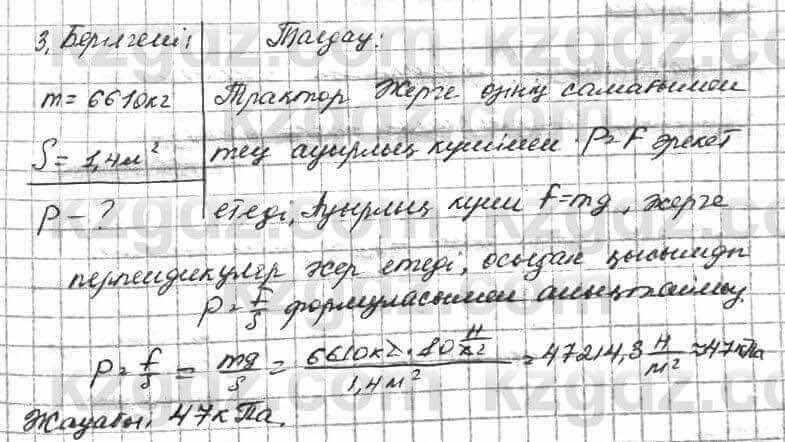 3. Берілгені: Талдау:
m = 6610кг Трактор жерге өзінің салмағымен
S = 1,4м² тең ауырлық күшімен P=F әрекет
P - ? етеді, Ауырлық күші F=mg, жерге
перпендикуляр әсер етеді, осыдан қысымды
P = F/S формуласымен анықтаймыз.
P = F/S = mg/S = 6610кг·10 Н/кг / 1,4м² = 47214,3 Н/м² ≈ 47кПа
Жауабы: 47кПа.